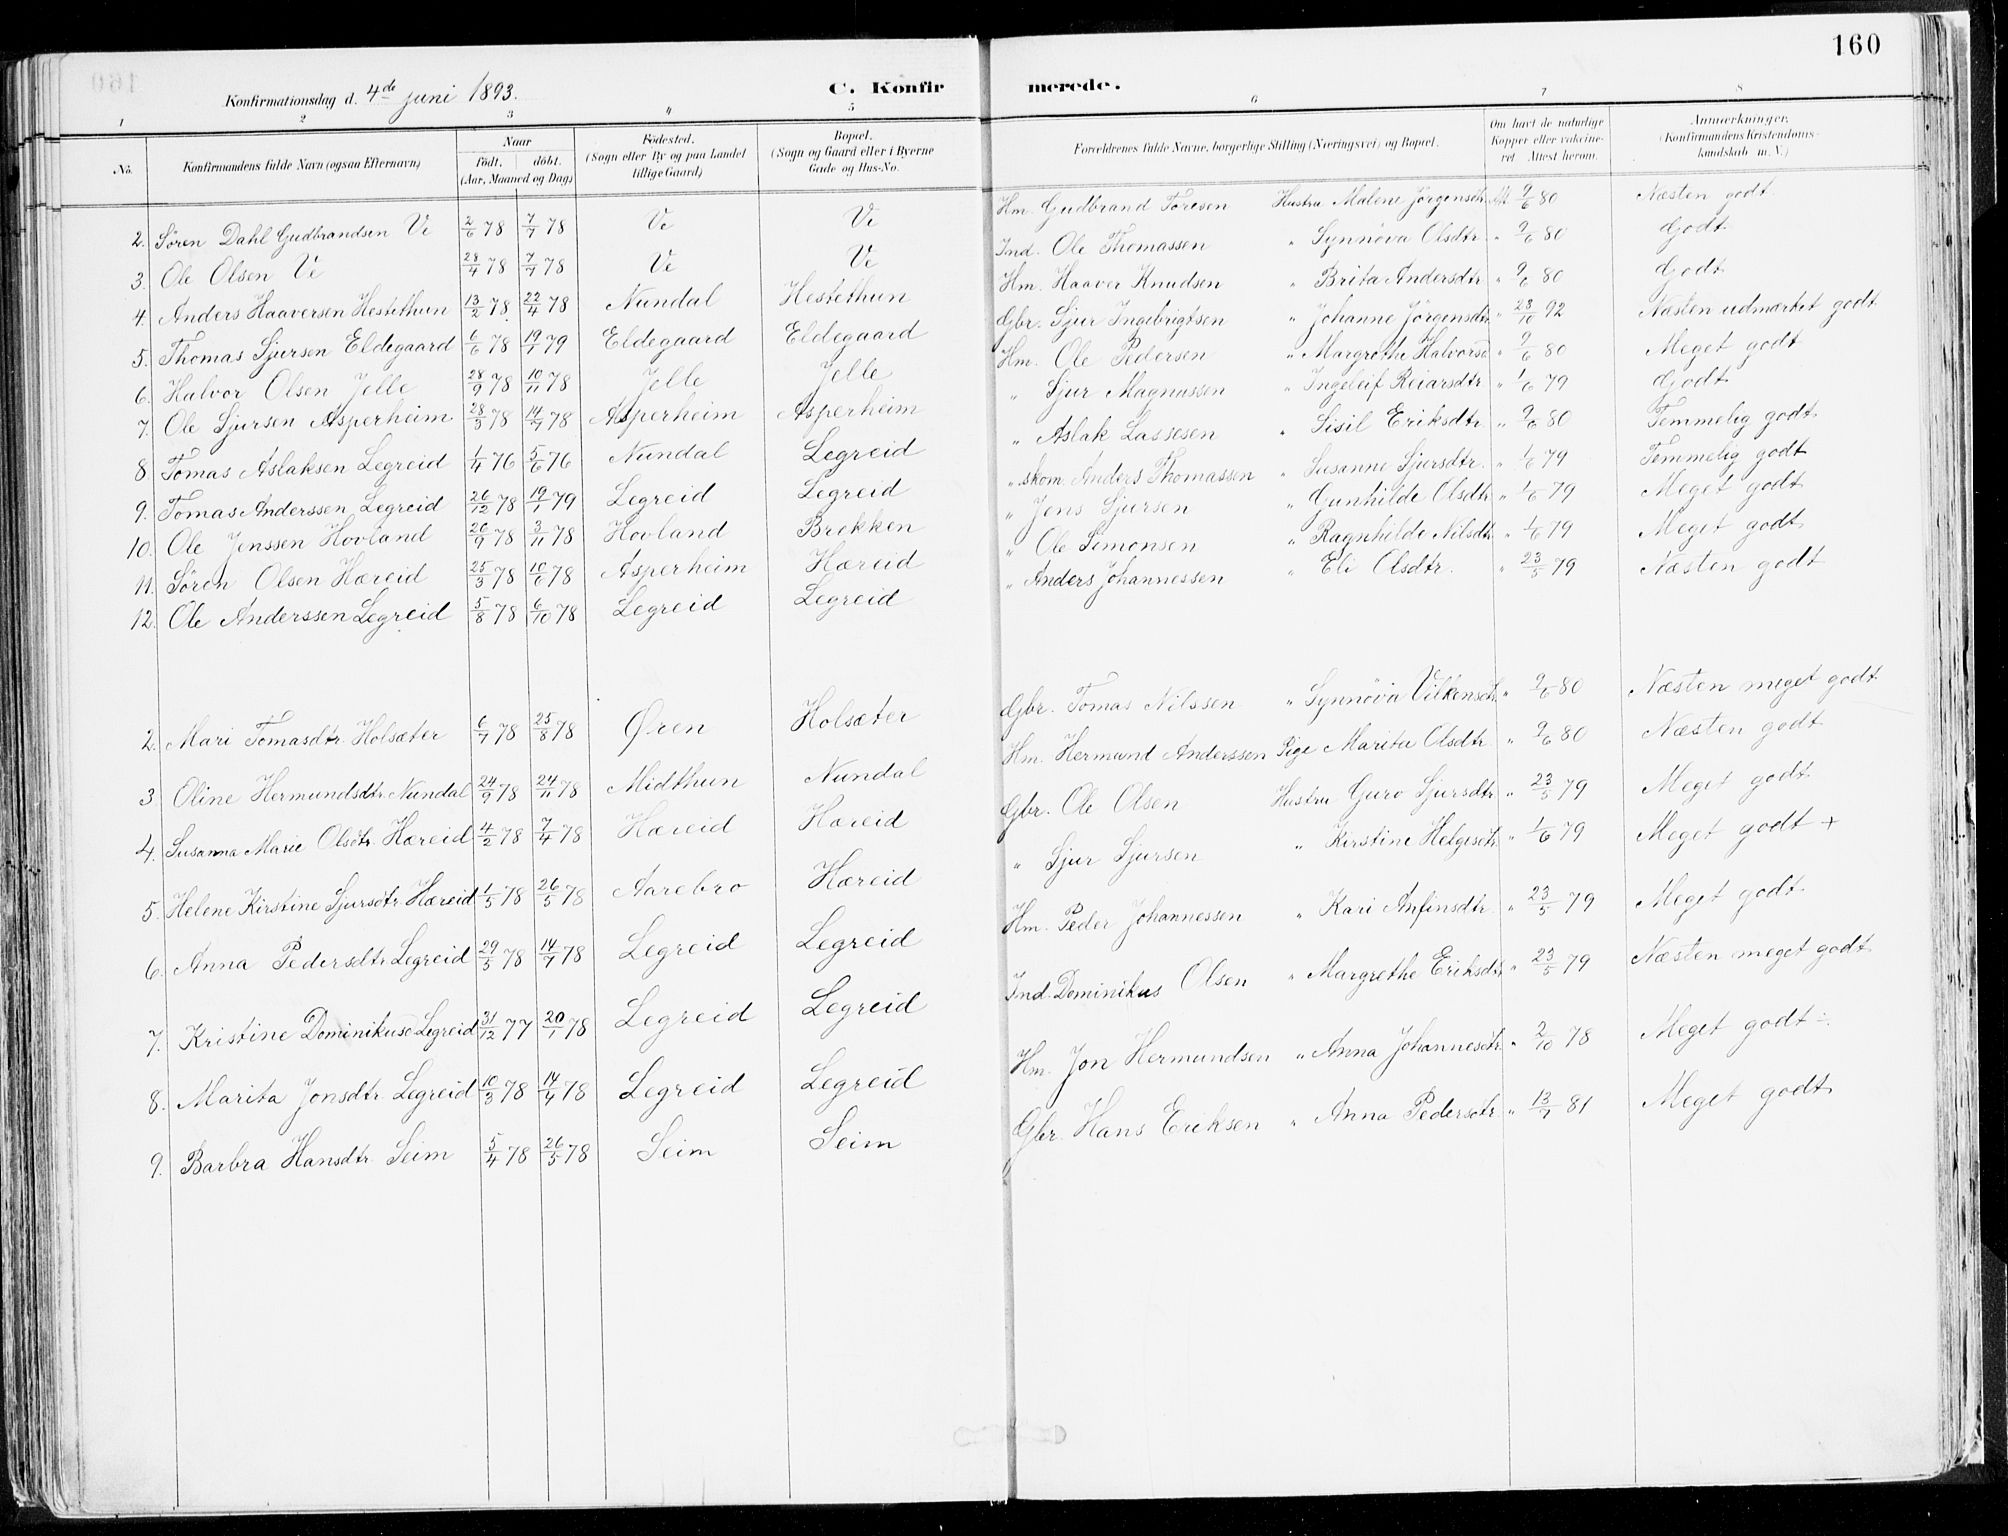 160
Konfirmationsdag d. 4de juni 1893. C. Konfirmerede.
1 2 3 " 5 6 7 8
No. Konfirmandens fulde Navn (ogsaa Efternavn) Naar født, døbt. (Aar, Maaned og Dag) Fødested. (Sogn eller By og paa Landet tillige Gaard) Bopæl. (Sogn og Gaard eller i Byerne Gade og Hus-No. Forældrenes fulde Navne, borgerlige Stilling (Næringsvei) og Bopæl. Om havt de naturlige Kopper eller vakcineret. Attest herom. Anmærkninger. (Konfirmandens Kristendomskundskab m. V.)
2. Søren Dahl Gudbrandsen Ve 2/6 78 7/7 78 Ve Ve Hm. Gudbrand Toresen Hustru Malene Jørgensdtr. Att. 9/6 80 Næsten godt.
3. Ole Olsen Ve 28/4 78 7/7 78 Ve Ve Ind. Ole Thomassen " Synnøva Olsdtr. " 9/6 80 Godt
4. Anders Haaversen Hestethun 13/2 78. 22/4 78 Nundal Hestethun Hm. Haaver Knudsen " Brita Andersdtr. " 9/6 80 Godt
5. Thomas Sjursen Eldegaard 6/6 78 19/1 79 Eldegaard Eldegaard Gbr. Sjur Ingebrigtsen " Johanne Jörgensdtr. " 28/10 92 Næsten udmærket godt
6. Halvor Olsen Jelle 28/9 78 10/11 78 Jelle Jelle Hm. Ole Pedersen " Margrethe Halvorsd " 9/6 80 Meget godt
7. Ole Sjursen Asperheim 28/3 78 14/4 78 Asperheim Asperheim " Sjur Magnussen " Ingeleif Reiarsdtr " 1/6 79 Godt
8. Tomas Aslaksen Legreid 1/4 76 5/6 76 Nundal Legreid " Aslak Lassesen " Sisil Eriksdtr. " 9/6 80 Temmelig godt.
9. Tomas Anderssen Legreid 26/12 78 19/1 79 Legreid Legreid " skom. Anders Thomassen " Susanne Sjursdtr. " 1/6 79 Temmelig godt
10. Ole Jenssen Hovland 26/9 78 3/11 78 Hovland Brekken " Jens Sjursen " Gunhilde Olsdtr " 1/6 79 Meget godt
11. Søren Olsen Hæreid 25/3 78 10/6 78 Asperheim Hæreid " Ole Simonsen " Ragnhilde Nilsdtr. " 1/6 79 Meget godt.
12. Ole Anderssen Legreid 5/8 78 6/10 78 Legreid Legreid " Anders Johannessen " Eli Olsdtr. " 23/5 79 Næsten godt
2. Mari Tomasdtr. Holsæter 6/7 78 25/8 78 Øren Holsæter Gbr. Tomas Nilssen " Synnöva Vilkensdtr. " 9/6 80 Næsten meget godt
3. Oline Hermundsdtr. Nundal 24/9 78 24/11 78 Midthun Nundal Hm. Hermund Anderssen Pige Marita Olsdtr. " 9/6 80 Næsten godt
4. Susanna Marie Olsdtr. Hæreid 4/2 78 7/4 78 Hæreid Hæreid Gbr. Ole Olsen Hustru Guro Sjursdtr. " 23/5 79 Meget godt
5. Helene Kirstine Sjursdtr. Hæreid 1/5 78 26/5 78 Aarebro Hæreid " Sjur Sjursen " Kirstine Helgesdtr. " 1/6 79 Meget godt +
6. Anna Pedersdtr. Legreid 29/5 78 14/7 78 Legreid Legreid Hm. Peder Johannessen " Kari Anfinsdtr. " 23/5 79 Meget godt
7. Kristine Dominikusd Legreid 31/12 77 20/1 78 Legreid Legreid Ind. Dominikus Olsen " Margrethe Eriksdtr. " 23/5 79 Næsten meget godt
8. Marita Jonsdtr. Legreid 10/3 78 14/4 78 Legreid Legreid Hm. Jon Hermundsen " Anna Johannesdtr. " 2/10 78 Meget godt ÷
9. Barbra Hansdtr. Seim 5/4 78 26/5 78 Seim Seim Gbr. Hans Eriksen " Anna Pedersdtr. " 13/7 81 Meget godt